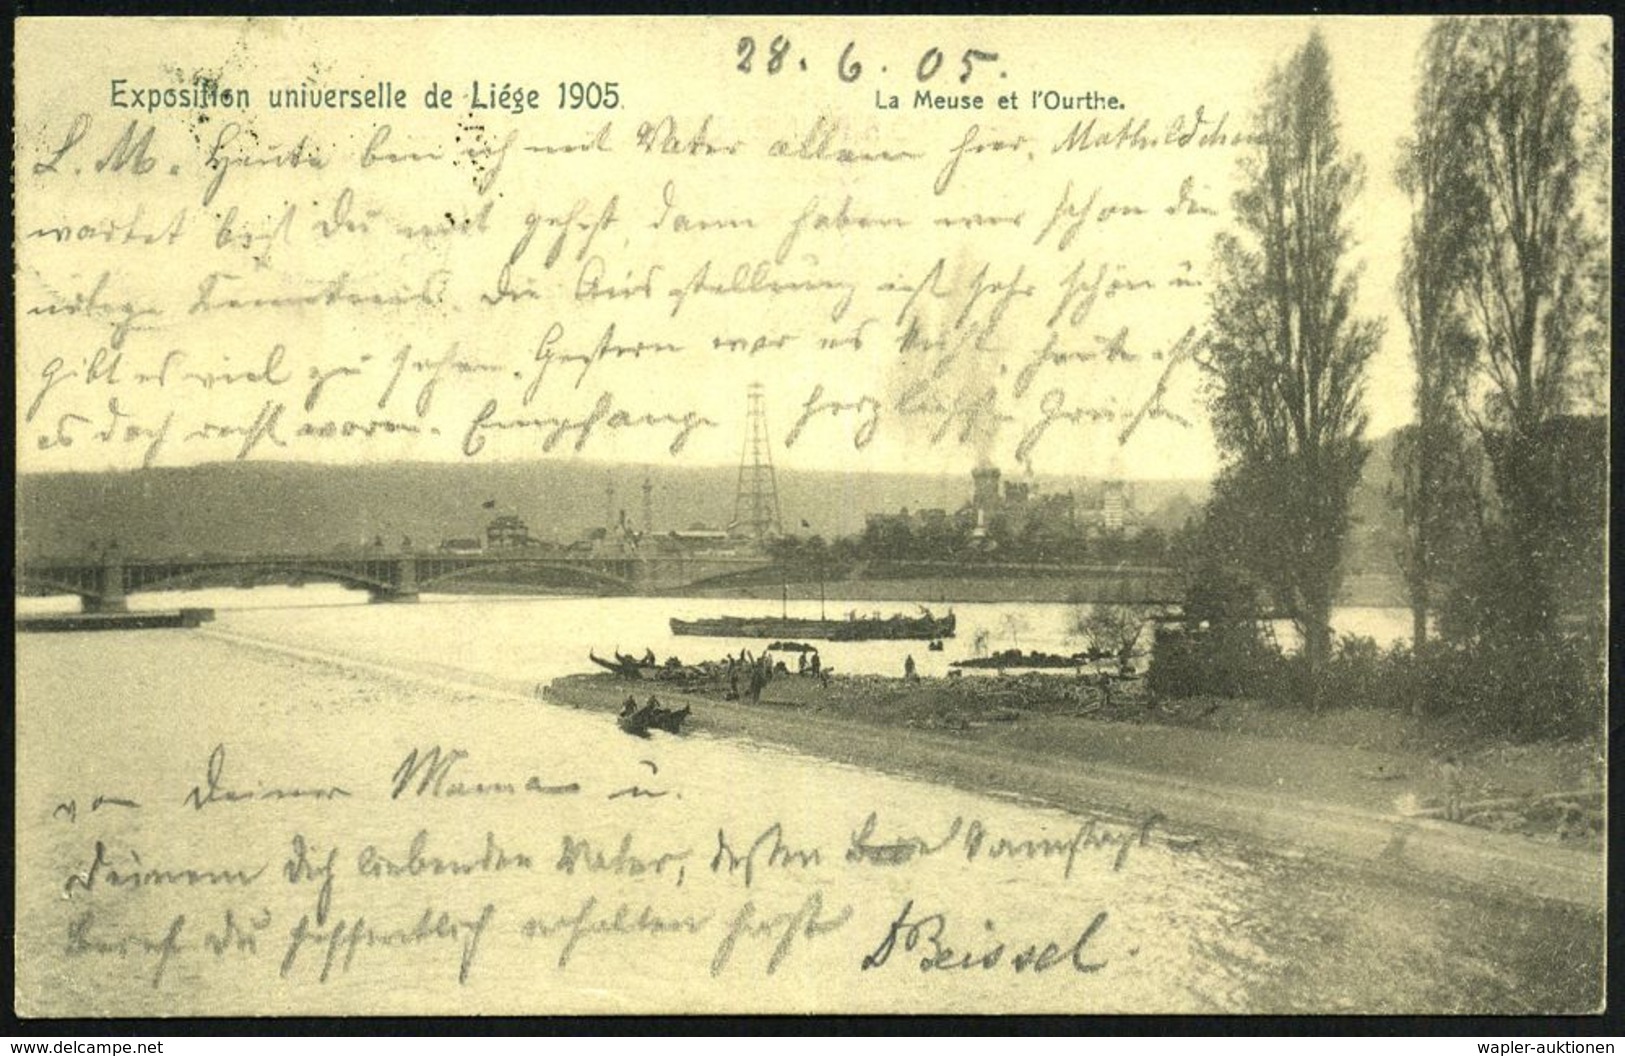 28. 6. 05.
Exposition universelle de Liége 1905.
La Meuse et l'Ourthe.
L. M. Heute bin ich mit Vater allein hier. Mathildchen
wartet bist Du mit gehst, dann haben wir schon die
nötige Kenntnis. Die Ausstellung ist sehr schön u.
gibt es viel zu sehen. Gestern war es heute ist
es doch recht warm. Empfange herzliche Grüße
von Deiner Mama u.
Deinem Dich liebenden Vater, dessen Samstags-
Brief Du hoffentlich erhalten hast
A Beissel.
www.delcampe.net
wapler-auktionen